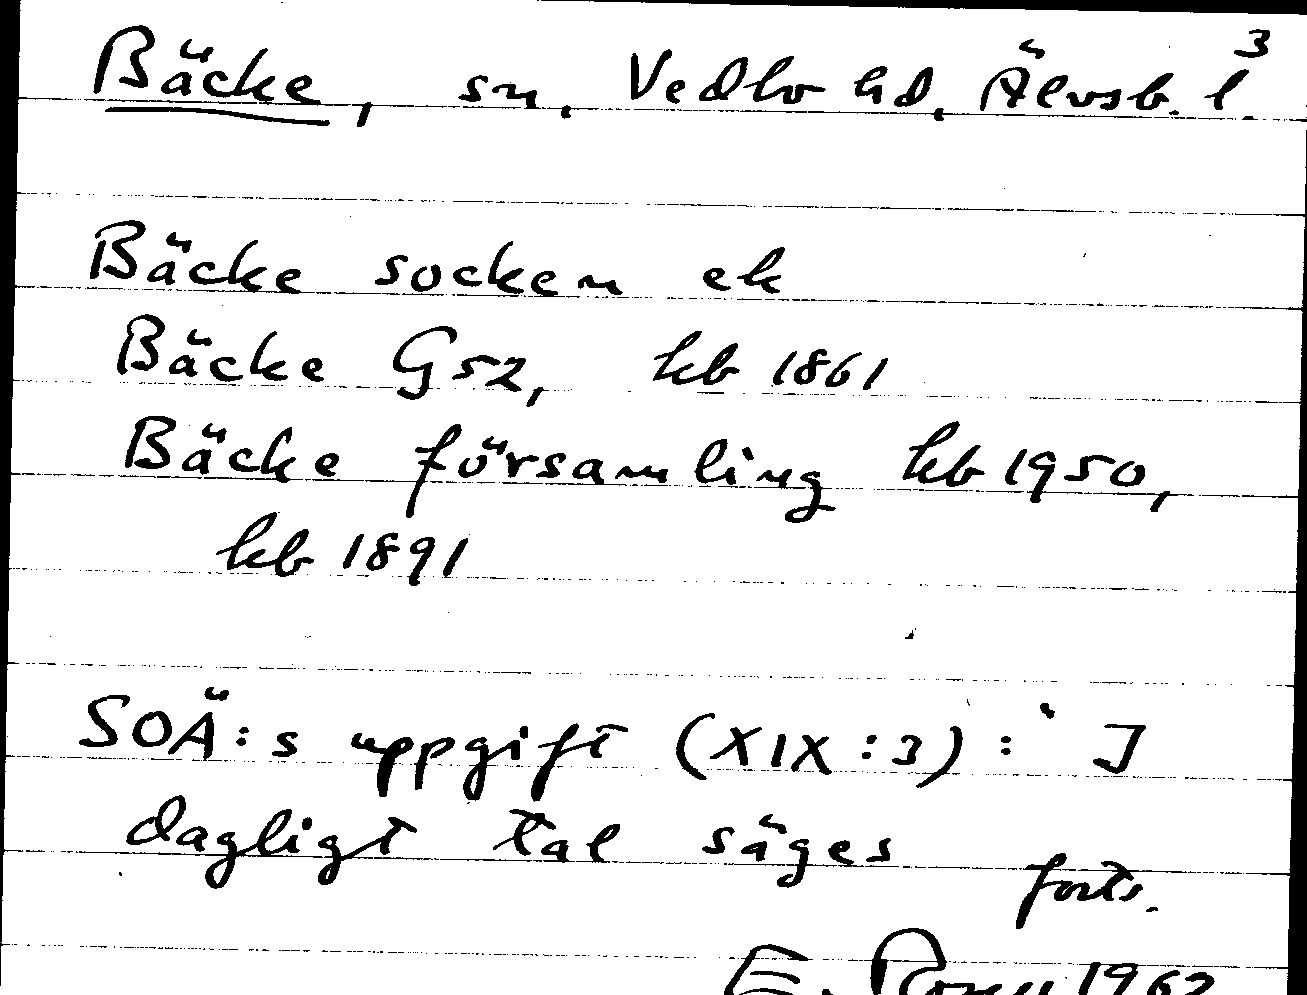 3
Bäcke, sn. Vedbo hd, Älvsb. l.
Bäcke socken ek
Bäcke G52, kb 1861
Bäcke församling kb 1950,
kb 1891
SOÄ:s uppgift (XIX:3): I
dagligt tal säges
forts.
E. 1962